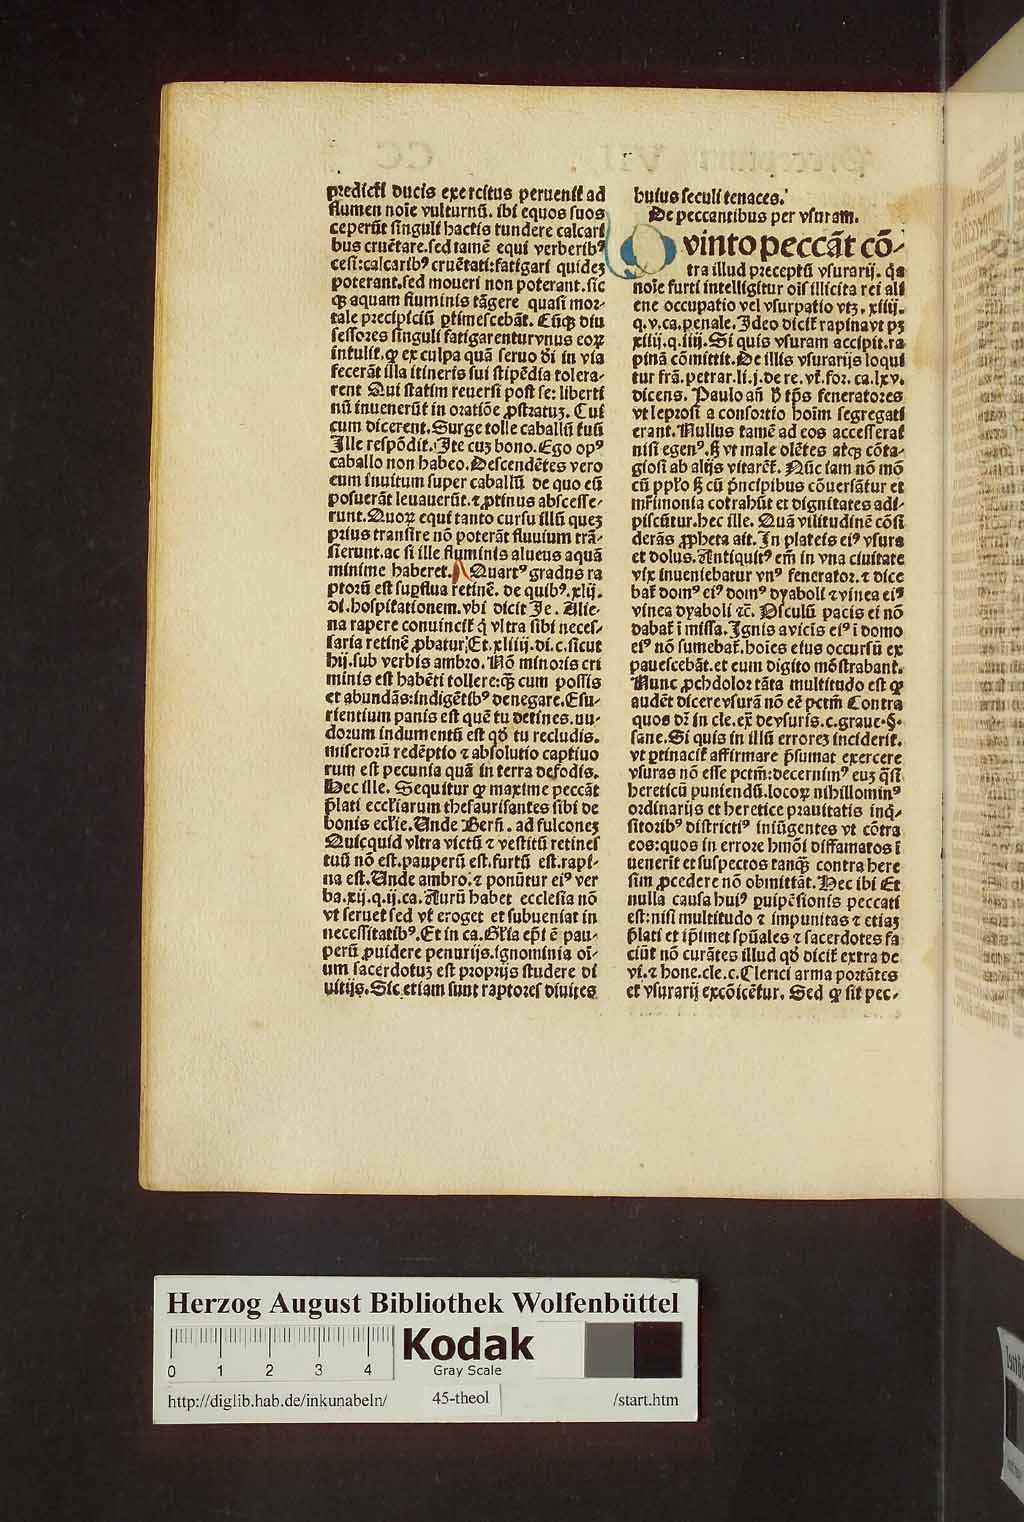 predicti ducis exercitus peruenit ad
flumen noīe vulturnū. ibi equos suos
ceperūt singuli hactis tundere calcari
bus cruētare.sed tamē equi verberibꝰ
cesi:calcaribꝰ cruētati:fatigari quidez
poterant.sed moueri non poterant.sic
qꝫ aquam fluminis tāgere quasi mor-
tale precipiciū ꝑtimescebāt. Cūqꝫ diu
sessores singuli fatigarentur vnus eoꝝ
intulit.ꝙ ex culpa quā seruo dei in via
fecerāt illa itineris sui stipēdia tolera-
rent Qui statim reuersi post se: liberti
nū inuenerūt in oratiōe ꝓstratuz. Cui
cum dicerent. Surge tolle caballū tuū
Ille respōdit. Ite cuz bono. Ego opꝰ
caballo non habeo. Descendētes vero
eum inuitum super caballū de quo eū
posuerāt leuauerūt.⁊ ꝓtinus abscesse-
runt. Quoꝝ equi tanto cursu illū quez
prius transire nō poterāt fluuium trā-
sierunt.ac si ille fluminis alueus aquā
minime haberet. Quartꝰ gradus ra
ptorū est suꝑflua retinē. de quibꝰ.xlij.
di.hospitationem.vbi dicit Je. Alie-
na rapere conuincit̄ q̇ vltra sibi neces-
saria retinē ꝓbatur. Et.xliiij.di.c.sicut
hij.sub verbis ambro. Nō minoris cri
minis est habēti tollere:qꝫ cum possis
et abundās:indigētibꝰ denegare. Esu-
rientium panis est quē tu detines. nu-
dorum indumentū est qd̄ tu recludis.
miserorū redēptio ⁊ absolutio captiuo
rum est pecunia quā in terra defodis.
Hec ille. Sequitur ꝙ maxime peccāt
p̄lati eccl̄iarum thesaurisantes sibi de
bonis eccl̄ie. Unde Berñ. ad fulconez
Quicquid vltra victū ⁊ vestitū retines
tuū nō est. pauperū est. furtū est. rapi-
na est. Unde ambro.⁊ ponūtur eiꝰ ver
ba.xij.q.ij.ca. Aurū habet ecclesia nō
vt seruet sed vt eroget et subueniat in
necessitatibꝰ. Et in ca. Gl̄ia ep̄i ē pau-
perū ꝓuidere penurijs. ignominia oī-
um sacerdotuz est proprijs studere di
uitijs. Sic etiam sunt raptores diuites
huius seculi tenaces.
De peccantibus per vsuram.
Qvinto peccāt cō-
tra illud preceptū vsurarij. qa
noīe furti intelligitur oīs illicita rei ali
ene occupatio vel vsurpatio vtz. xiiij.
q.v.ca.penale. Ideo dicit̄ rapina vt pz
xiiij.q.iiij. Si quis vsuram accipit. ra
pinā cōmittit. De illis vsurarijs loqui
tur frā.petrar.li.j.de re.vt̄.for.ca.lxv.
dicens. Paulo añ h̄ tp̄s feneratores
vt leprosi a consortio hoīm segregati
erant. Nullus tamē ad eos accesserat
nisi egenꝰ. sꝫ vt male olētes atqꝫ cōta-
giosi ab alijs vitarēt̄. Nūc iam nō mō
cū pp̄lo sꝫ cū p̄ncipibus cōuersātur et
mr̄imonia cotrahūt et dignitates adi-
piscūtur. hec ille. Quā vilitudinē cōsi
derās ꝓpheta ait. In plateis eiꝰ vsura
et dolus. Antiquitꝰ em̄ in vna ciuitate
vix inueniebatur vnꝰ fenerator.⁊ dice
bat̄ domꝰ eiꝰ domꝰ dyaboli ⁊ vinea eiꝰ
vinea dyaboli ⁊c̄. Osculū pacis ei nō
dabat̄ ī missa. Ignis a vicīs eiꝰ ī domo
eiꝰ nō sumebat̄. hoīes eius occursū ex
pauescebāt. et eum digito mōstrabant.
Nunc ꝓchdolor tāta multitudo est ꝙ
audēt dicere vsurā nō eē pctm̄ Contra
quos dr̄ in cle.ex̄ de vsuris.c.graue.§.
sane. Si quis in illū errorez inciderit.
vt ꝑtinacit̄ affirmare p̄sumat exercere
vsuras nō esse pctm̄:decernimꝰ euz q̄si
hereticū puniendū. locoꝝ nihillominꝰ
ordinarijs et heretice prauitatis inq̇-
sitoribꝰ districtiꝰ iniūgentes vt cōtra
eos:quos in errore hmōi diffamatos ī
uenerit et suspectos tanqꝫ contra here
sim ꝓcedere nō obmittāt. Hec ibi Et
nulla causa huiꝰ ꝑuipēsionis peccati
est:nisi multitudo ⁊ impunitas ⁊ etiaz
p̄lati et ip̄imet spūales ⁊ sacerdotes fa
ciūt nō curātes illud qd̄ dicit̄ extra de
vi.⁊ hone.cle.c. Clerici arma portātes
et vsurarij excōicētur. Sed ꝙ sit pec-
Herzog August Bibliothek Wolfenbüttel
0 1 2 3 4
Kodak
Gray Scale
http://diglib.hab.de/inkunabeln/ 45-theol /start.htm